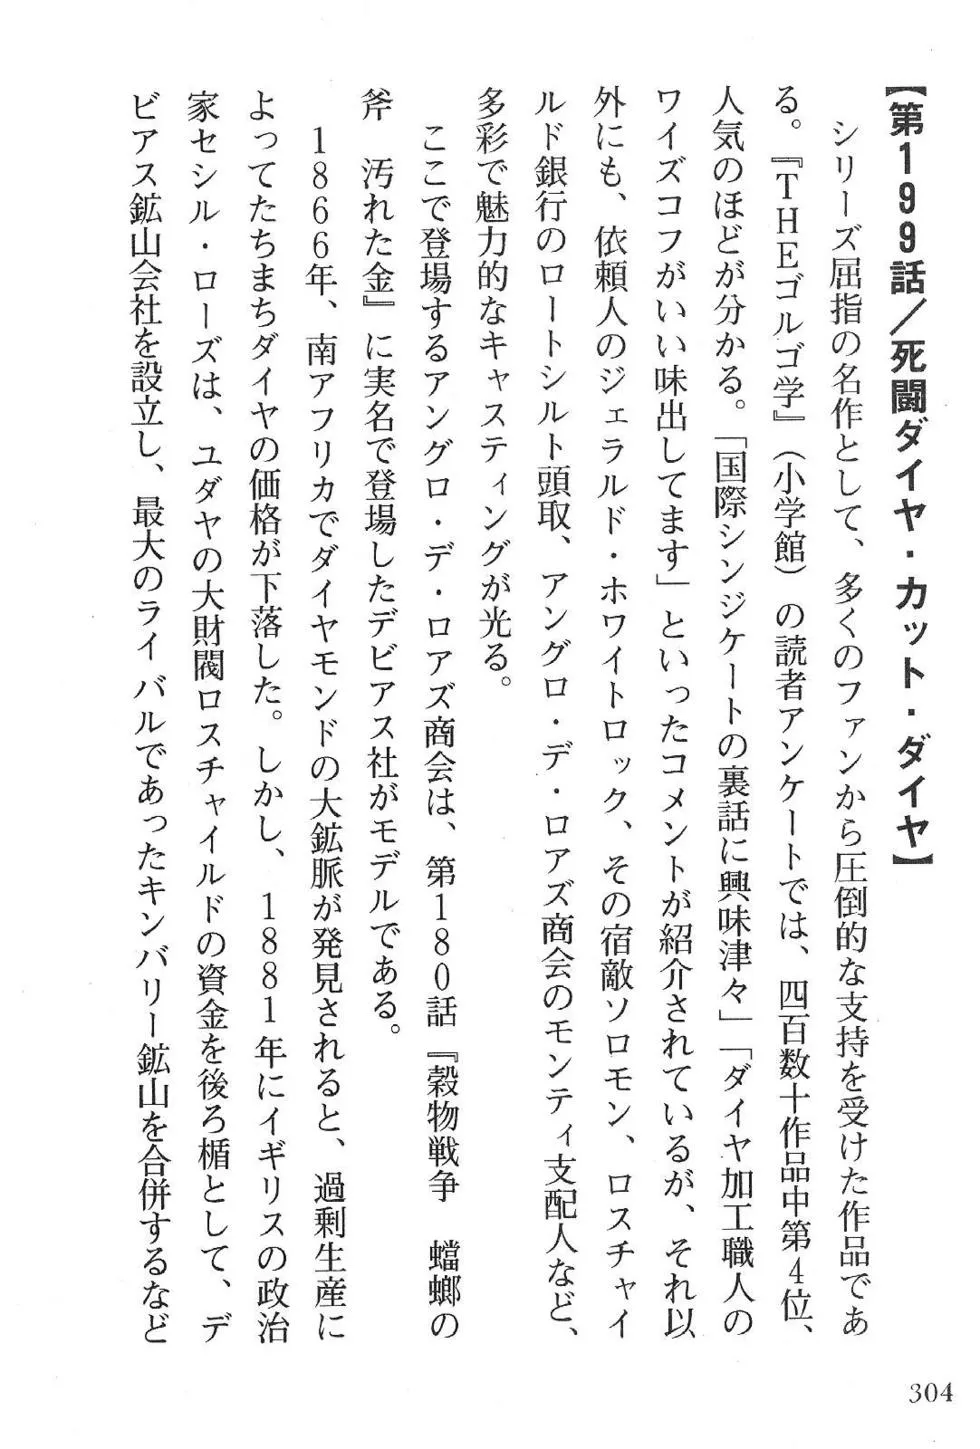 【第199話／死闘ダイヤ・カット・ダイヤ】
シリーズ屈指の名作として、多くのファンから圧倒的な支持を受けた作品であ
る。『THEゴルゴ学』（小学館）の読者アンケートでは、四百数十作品中第4位、
人気のほどが分かる。「国際シンジケートの裏話に興味津々」「ダイヤ加工職人の
ワイズコフがいい味出してます」といったコメントが紹介されているが、それ以
外にも、依頼人のジェラルド・ホワイトロック、その宿敵ソロモン、ロスチャイ
ルド銀行のロートシルト頭取、アングロ・デ・ロアズ商会のモンティ支配人など、
多彩で魅力的なキャスティングが光る。
ここで登場するアングロ・デ・ロアズ商会は、第180話『穀物戦争　蟷螂の
斧　汚れた金』に実名で登場したデビアス社がモデルである。
1866年、南アフリカでダイヤモンドの大鉱脈が発見されると、過剰生産に
よってたちまちダイヤの価格が下落した。しかし、1881年にイギリスの政治
家セシル・ローズは、ユダヤの大財閥ロスチャイルドの資金を後ろ楯として、デ
ビアス鉱山会社を設立し、最大のライバルであったキンバリー鉱山を合併するなど
304